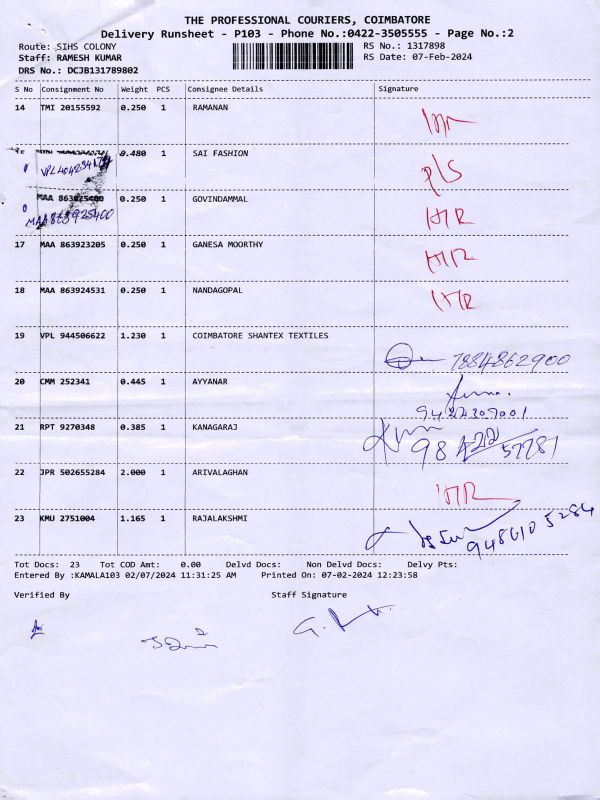 THE PROFESSIONAL COURIERS, COIMBATORE
Delivery Runsheet - P103 - Phone No.:0422-3505555 - Page No.:2
Route: SIHS COLONY RS No.: 1317898
Staff: RAMESH KUMAR RS Date: 07-Feb-2024
DRS No.: DCJB131789802
S No Consignment No Weight PCS Consignee Details Signature
14 TMI 20155592 0.250 1 RAMANAN
0.480 1 SAI FASHION
MAA 863925400 0.250 1 GOVINDAMMAL
MAA 863925400
17 MAA 863923205 0.250 1 GANESA MOORTHY
18 MAA 863924531 0.250 1 NANDAGOPAL
19 VPL 944506622 1.230 1 COIMBATORE SHANTEX TEXTILES
7884862900
20 CMM 252341 0.445 1 AYYANAR
21 RPT 9270348 0.385 1 KANAGARAJ
98 422 57781
22 JPR 502655284 2.000 1 ARIVALAGHAN
23 KMU 2751004 1.165 1 RAJALAKSHMI
948610 5284
Tot Docs: 23 Tot COD Amt: 0.00 Delvd Docs: Non Delvd Docs: Delvy Pts:
Entered By :KAMALA103 02/07/2024 11:31:25 AM Printed On: 07-02-2024 12:23:58
Verified By Staff Signature